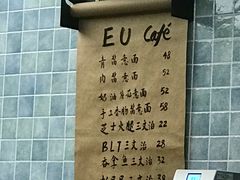 EU Café
青酱意面 48
肉酱意面 52
奶油 意面 52
手工香肠酱面 58
芝士火腿三文治 22
BLT三文治 28
吞拿鱼三文治 32